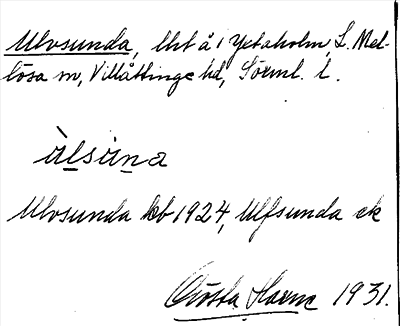 Ulvsunda, lht å i Yxtaholm, L. Mel-
lösa sn, Villåttinge hd, Sörml. l.
ùlsùna
Ulvsunda kb 1924, Ulfsunda ek
Gösta 1931.